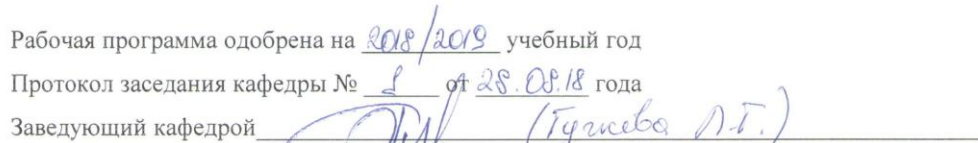 Рабочая программа одобрена на 2018/2019 учебный год
Протокол заседания кафедры № 1 от 28.08.18 года
Заведующий кафедрой (Л.Т.)